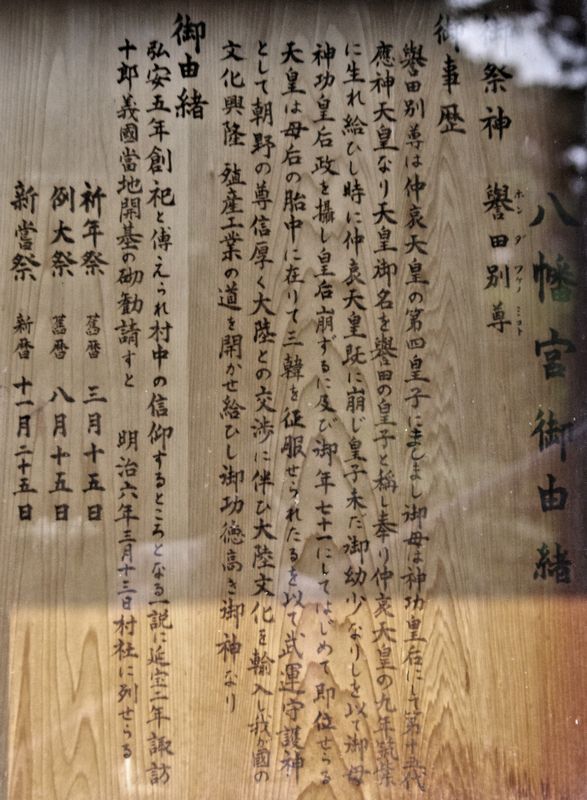 八幡宮御由緒
御祭神 譽田別尊
ホンダワケノミコト
御事歴
譽田別尊は仲哀天皇の第四皇子にましまし御母は神功皇后にして第十五代
應神天皇なり天皇御名を譽田の皇子と稱し奉り仲哀天皇の九年筑紫
に生れ給ひし時に仲哀天皇既に崩じ皇子未だ御幼少なりしを以て御母
神功皇后政を攝し皇后崩ずるに及び御年七十一にしてはじめて即位せらる
天皇は母后の胎中に在りて三韓を征服せられたるを以て武運守護神
として朝野の尊信厚く大陸との交渉に伴ひ大陸文化を輸入し我が國の
文化興隆 殖産工業の道を開かせ給ひし御功徳高き御神なり
御由緒
弘安五年創祀と傳えられ村中の信仰するところとなる一説に延宝二年諏訪
十郎義國當地開基の砌勧請すと 明治六年三月十三日村社に列せらる
祈年祭 舊暦 三月十五日
例大祭 舊暦 八月十五日
新嘗祭 新暦 十一月二十五日